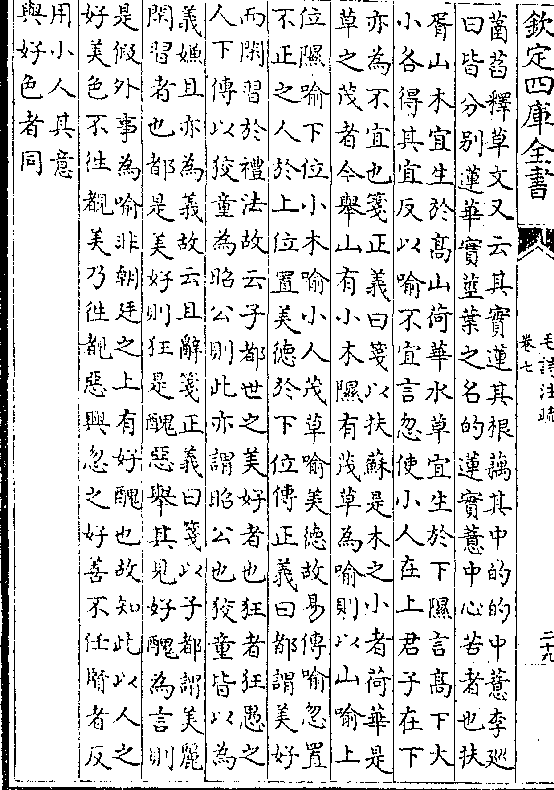 欽定四庫全書
毛詩注疏
卷七
二十九
菡萏釋草文又云其實蓮其根藕其中的的中薏李巡
曰皆分别蓮華實莖葉之名的蓮實薏中心苦者也扶
胥山木宜生於髙山荷華水草宜生於下隰言髙下大
小各得其宜反以喻不宜言忽使小人在上君子在下
亦為不宜也箋正義曰箋以扶蘇是木之小者荷華是
草之茂者今舉山有小木隰有茂草為喻則以山喻上
位隰喻下位小木喻小人茂草喻美德故易傳喻忽置
不正之人於上位置美德於下位傳正義曰都謂美好
而閑習於禮法故云子都世之美好者也狂者狂愚之
人下傳以狡童為昭公則此亦謂昭公也狡童皆以為
義嫌且亦為義故云且辭箋正義曰箋以子都謂美麗
閑習者也都是美好則狂是醜惡舉其見好醜為言則
是假外事為喻非朝廷之上有好醜也故知此以人之
好美色不徃覩美乃徃覩惡興忽之好善不任賢者反
用小人其意
與好色者同